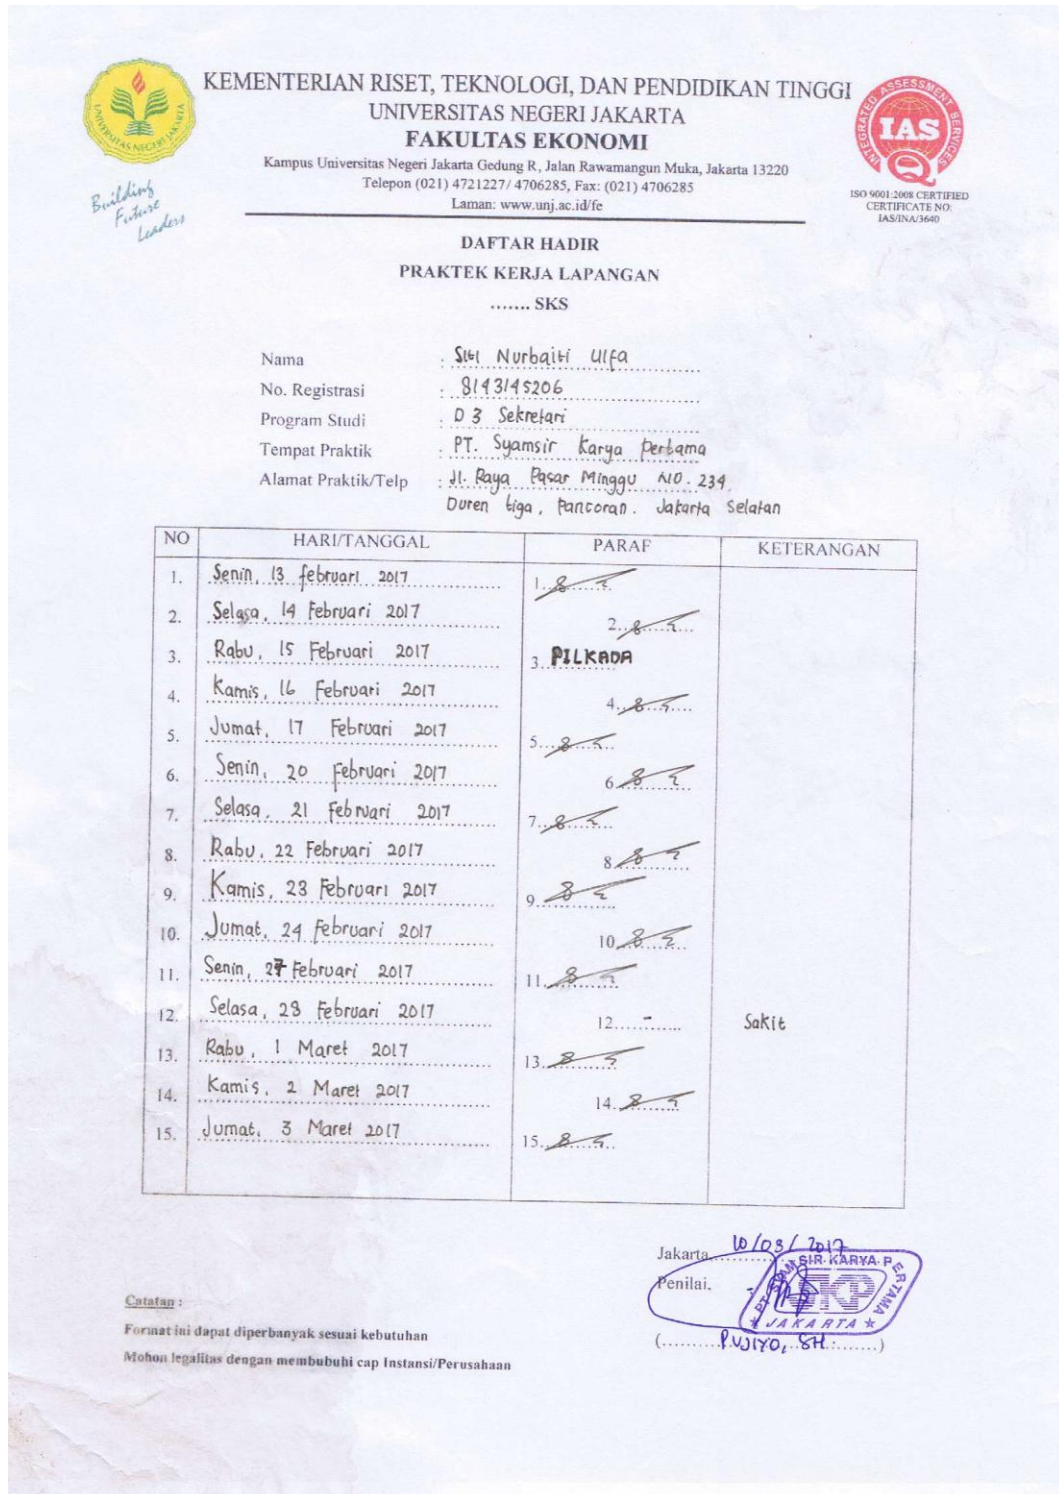 KEMENTERIAN RISET, TEKNOLOGI, DAN PENDIDIKAN TINGGI
UNIVERSITAS NEGERI JAKARTA
FAKULTAS EKONOMI
Kampus Universitas Negeri Jakarta Gedung R, Jalan Rawamangun Muka, Jakarta 13220
Telepon (021) 4721227/ 4706285, Fax: (021) 4706285
Laman: www.unj.ac.id/fe
UNIVERSITAS NEGERI JAKARTA
Building
Future
Leaders
INTEGRATED ASSESSMENT SERVICES
IAS
ISO 9001:2008 CERTIFIED
CERTIFICATE NO:
IAS/INA/3640
DAFTAR HADIR
PRAKTEK KERJA LAPANGAN
....... SKS
Nama : Siti Nurbaiti Ulfa
No. Registrasi : 8143145206
Program Studi : D3 Sekretari
Tempat Praktik : PT. Syamsir Karya Pertama
Alamat Praktik/Telp : Jl. Raya Pasar Minggu NO. 234
Duren tiga, Pancoran. Jakarta Selatan
NO HARI/TANGGAL PARAF KETERANGAN
1. Senin, 13 februari 2017 1.
2. Selasa, 14 Februari 2017 2.
3. Rabu, 15 Februari 2017 3. PILKADA
4. Kamis, 16 Februari 2017 4.
5. Jumat, 17 Februari 2017 5.
6. Senin, 20 Februari 2017 6.
7. Selasa, 21 Februari 2017 7.
8. Rabu, 22 Februari 2017 8.
9. Kamis, 23 Februari 2017 9.
10. Jumat, 24 Februari 2017 10.
11. Senin, 27 Februari 2017 11.
12. Selasa, 28 Februari 2017 12. - Sakit
13. Rabu, 1 Maret 2017 13.
14. Kamis, 2 Maret 2017 14.
15. Jumat, 3 Maret 2017 15.
Jakarta, 10/03/2017
Penilai,
PT. SYAMSIR KARYA PERTAMA
SKP
JAKARTA
(P.UJIYO, SH.)
Catatan :
Format ini dapat diperbanyak sesuai kebutuhan
Mohon legalitas dengan membubuhi cap Instansi/Perusahaan